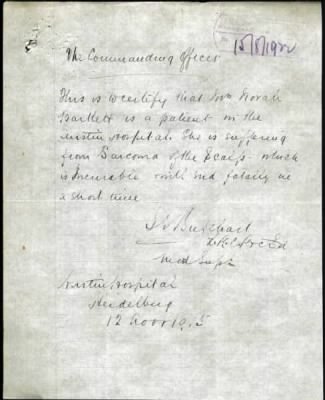 The Commanding Officer
This is to certify that Mrs Norah
Bartlett is a patient in the
Austin Hospital. She is suffering
from Sarcoma of the Scalp which
is Incurable & will end fatally in
a short time
Med Supt
Austin Hospital
Heidelberg
12